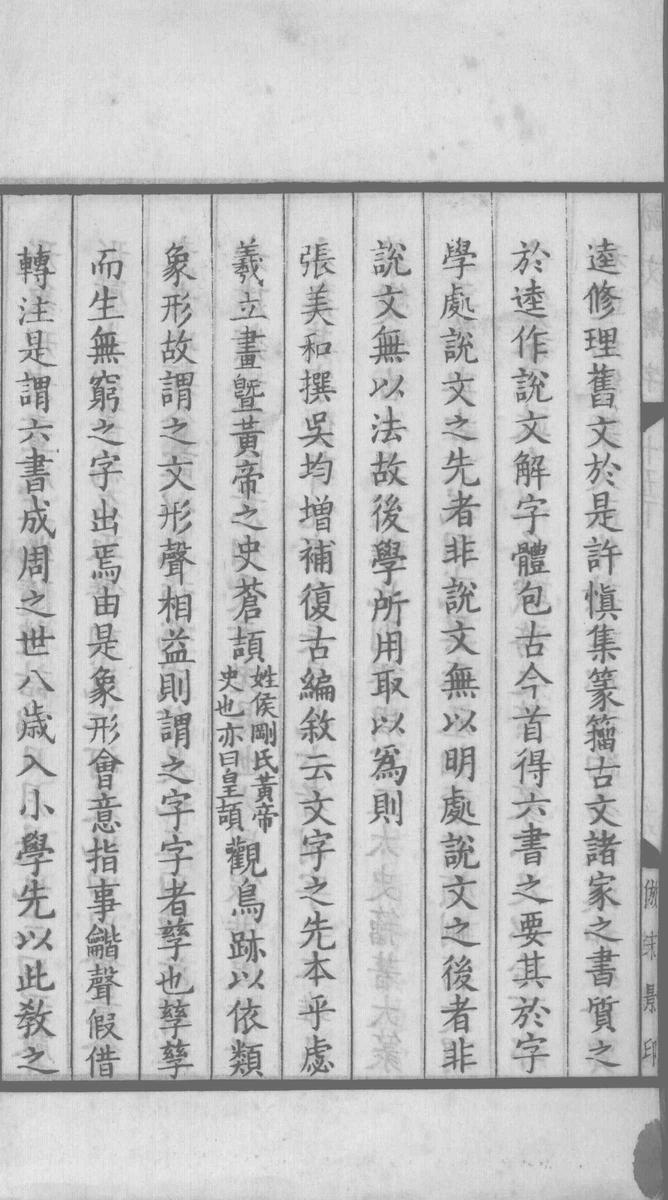 逵修理舊文於是許慎集篆籀古文諸家之書質之
於逵作說文解字體包古今首得六書之要其於字
學處說文之先者非說文無以明處說文之後者非
說文無以法故後學所用取以爲則
張美和撰吳均增補復古編敘云文字之先本乎虙
羲立畫曁黃帝之史蒼頡
姓侯剛氏黃帝
史也亦曰皇頡
觀鳥跡以依類
象形故謂之文形聲相益則謂之字字者孳也孳孳
而生無窮之字出焉由是象形會意指事龤聲假借
轉注是謂六書成周之世八歲入小學先以此教之